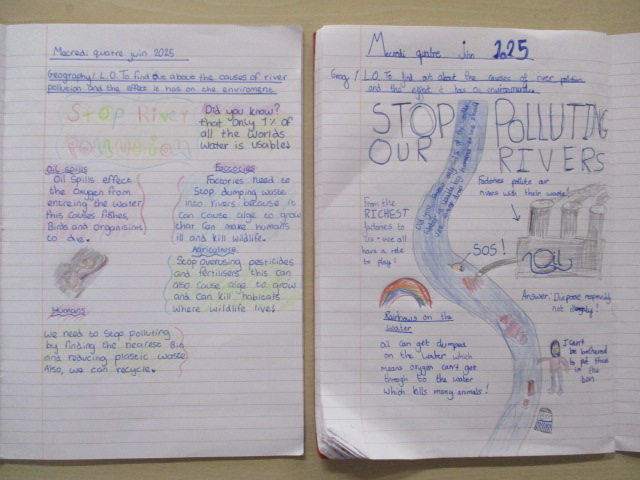 Mecredi quatre juin 2025
Geography/ L.O. To find out above the causes of river
pollution and the effect it has on the enviroment.
Stop River
Pollution
Did you know?
that only 1% of
all the worlds
water is usable
Oil spills
Oil Spills effect
the Oxygen from
entreing the water
this causes fishes,
Birds and organisims
to die.
Factories
Factories need to
Stop dumping waste
into rivers because it
can cause alge to grow
that can make humans
ill and kill wildlife.
Agriculture
Stop overusing pesticides
and fertilisers this can
also cause alge to grow
and can kill habitats
where wildlife lives
Humans
We need to Stop polluting
by finding the nearest Bin
and reducing plastic waste
Also, we can recycle.
Mecredi quatre juin 2025
Geog/ L.O. To find out about the causes of river pollution
and the effect it has on
STOP POLLUTING
OUR RIVERS
Factories pollute
rivers with their waste!
From the
RICHEST
factories to
us - we all
have a role
to play!
SOS!
Oil
Answer: Dispose responsibly
not
Rainbows on the
water
Oil can get dumped
on the water which
means oxygen can't get
through to the water
which kills many animals!
I can't
be bothered
to put this
in the
bin